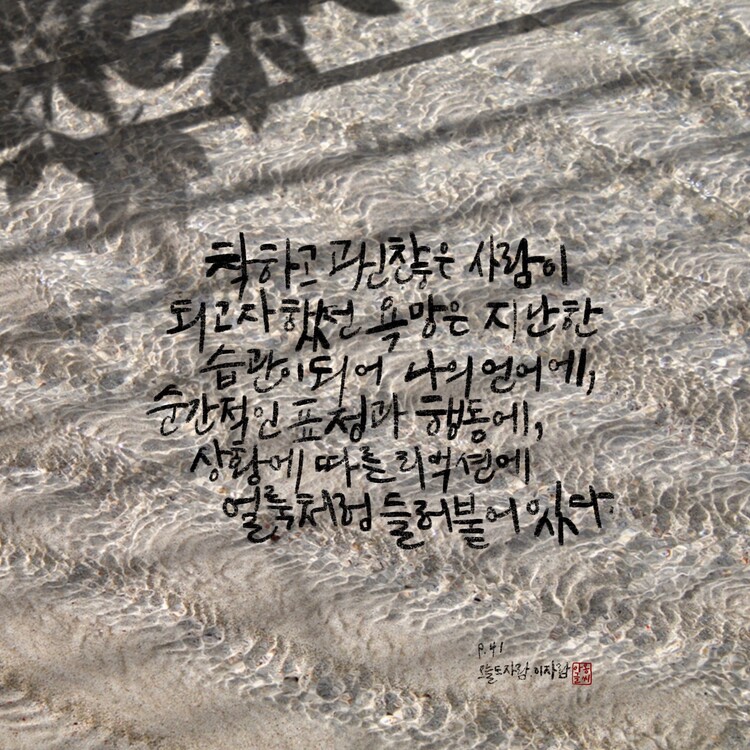 착하고 괜찮은 사람이
되고자 했던 욕망은 지난한
습관이 되어 나의 언어에,
순간적인 표정과 행동에,
상황에 따른 리액션에
얼룩처럼 들러붙어 있다.
p.41
오늘도 자람. 이자람